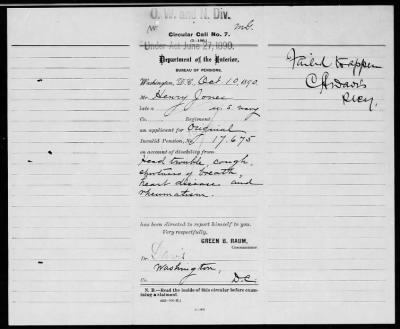 O. W. and N. Div.
Circular Call No. 7.
Under Act June 27, 1890.
Department of the Interior,
BUREAU OF PENSIONS,
Washington, D.C. Oct 10, 1890.
Mr Henry Jones
late a U. S. Navy
Co. Regiment
an applicant for Original
Invalid Pension, No. 17,675
on account of disability from
head trouble, cough,
shortness of breath,
heart disease and
rheumatism.
has been directed to report himself to you.
Very respectfully,
GREEN B. RAUM,
Commissioner.
Dr. Davis
Washington,
Co. D.C.
N. B.—Read the inside of this circular before examining a claimant
Failed to appear
C. A. Davis
Secy.